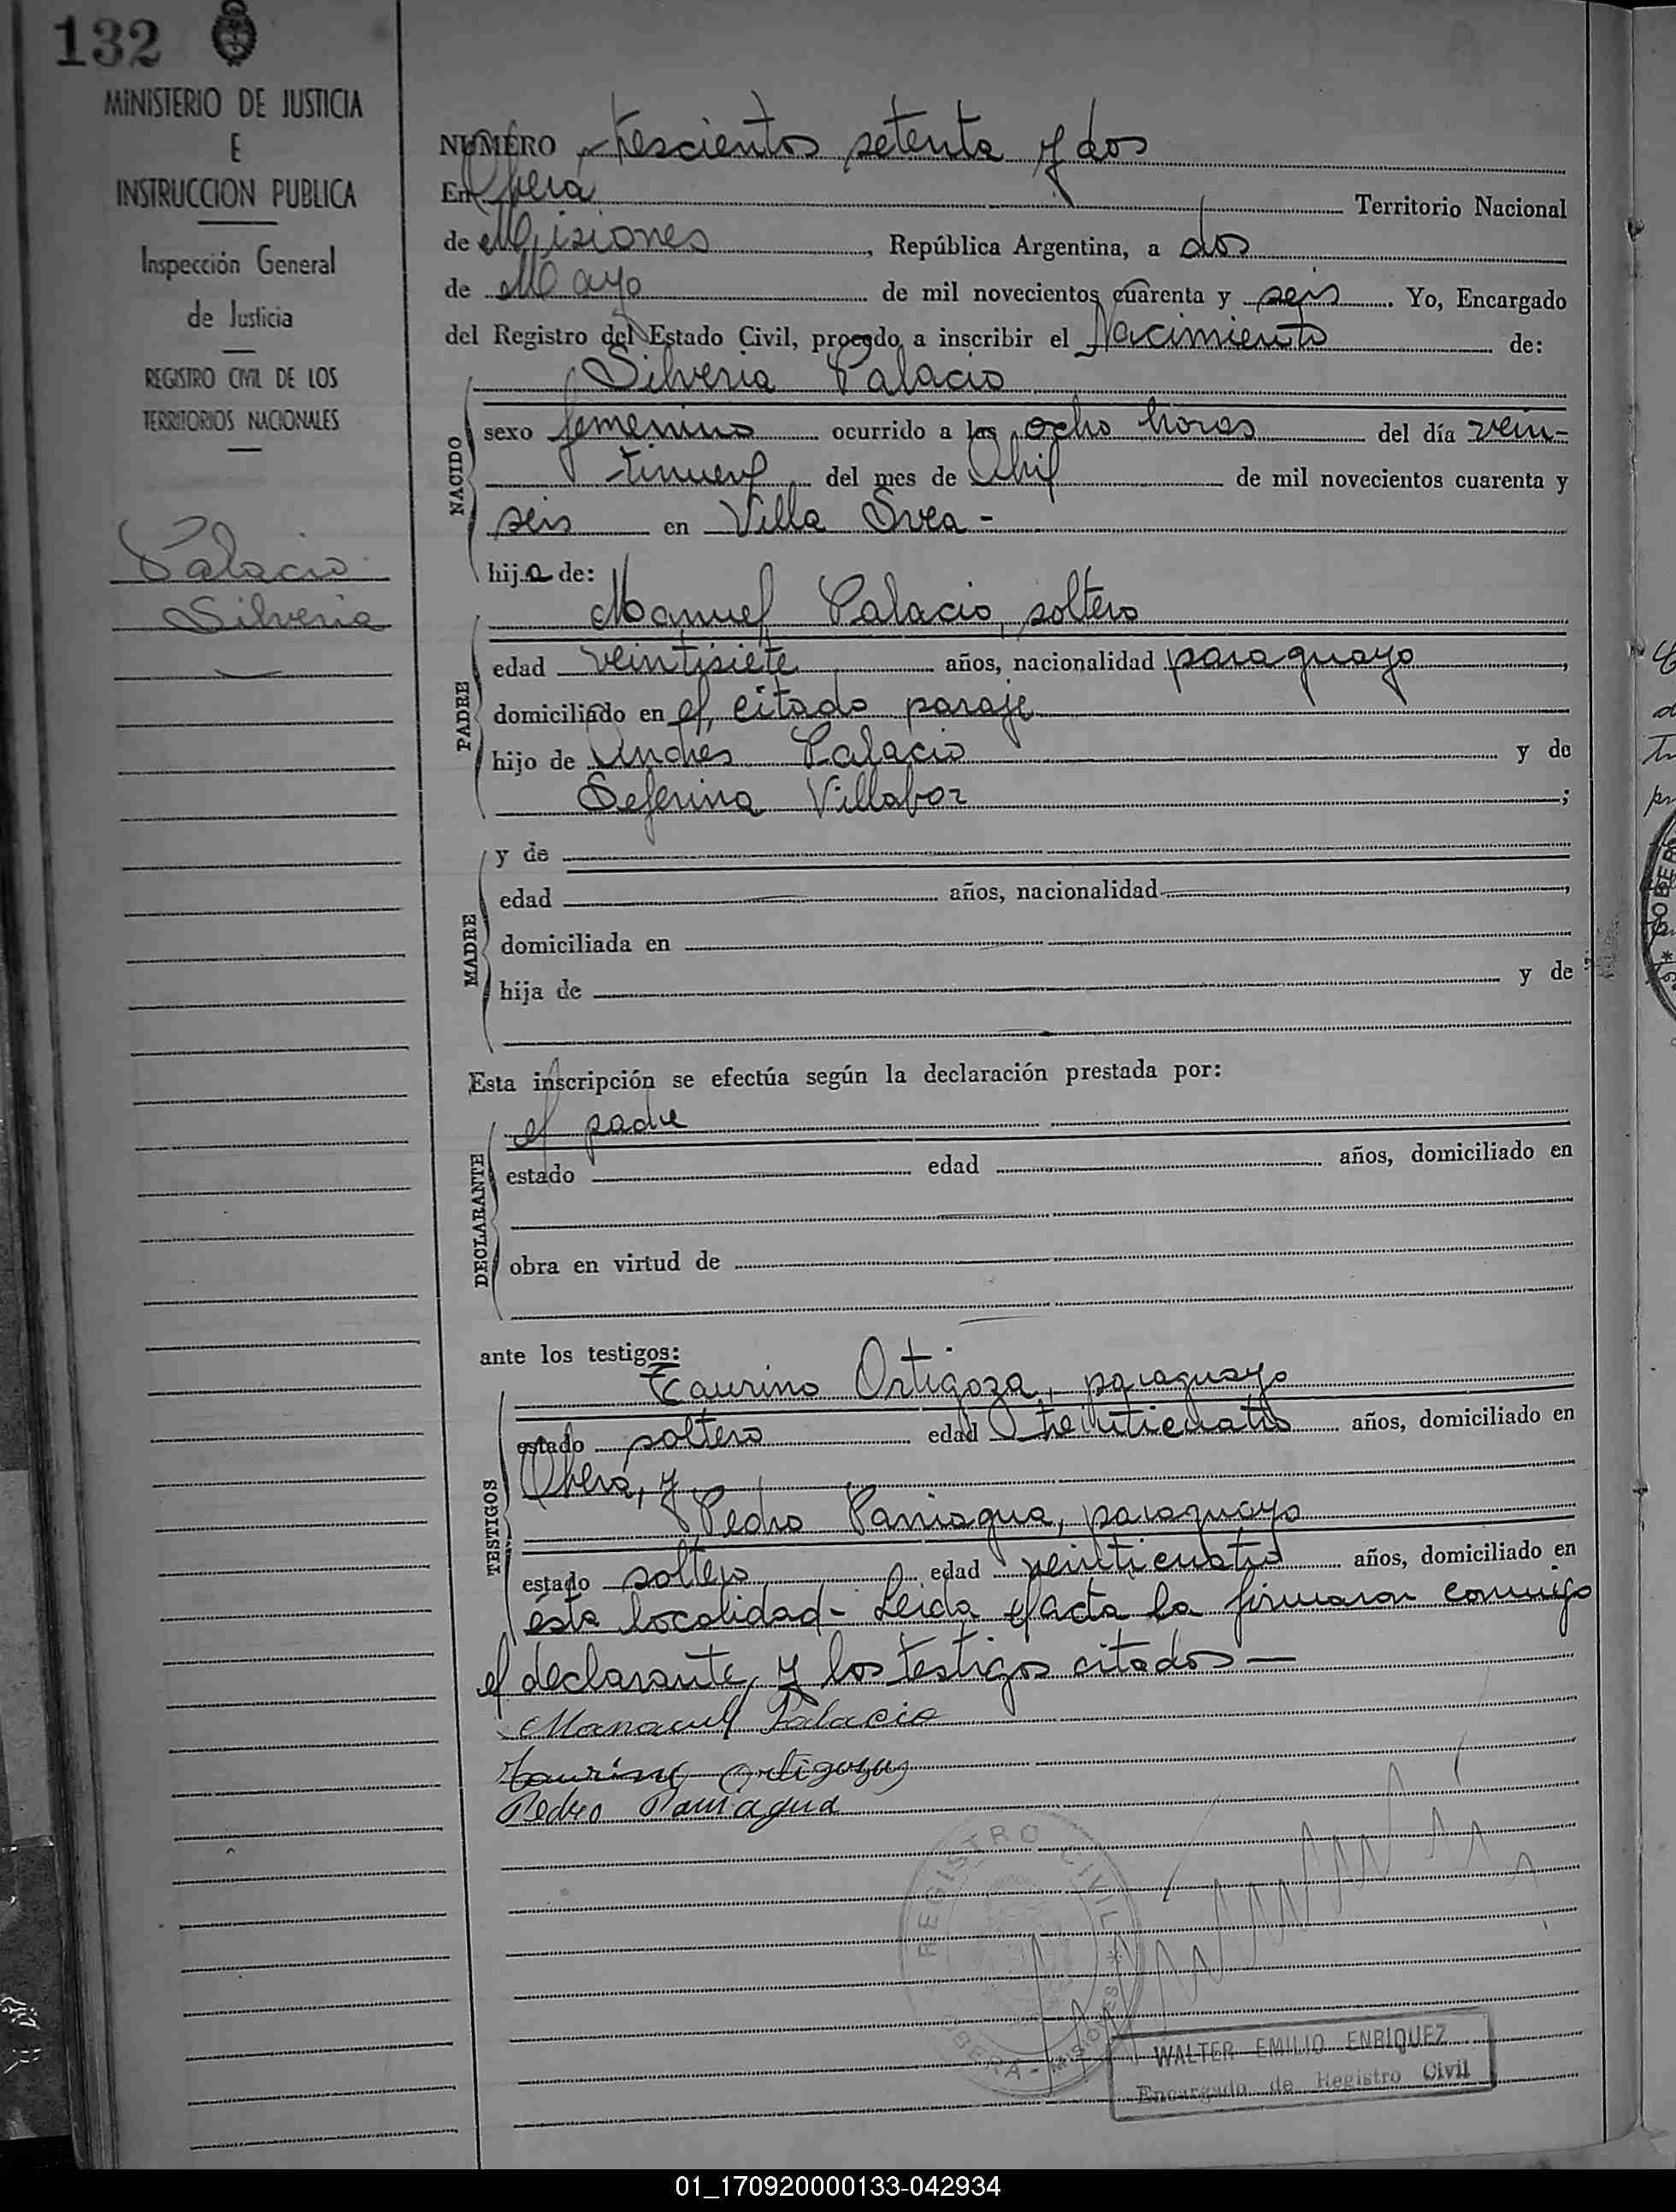 132
MINISTERIO DE JUSTICIA
E
INSTRUCCION PUBLICA
Inspección General
de Justicia
REGISTRO CIVIL DE LOS
TERRITORIOS NACIONALES
Palacio
Silveria
NUMERO trescientos setenta y dos
En Oberá Territorio Nacional
de Misiones, República Argentina, a dos
de Mayo de mil novecientos cuarenta y seis. Yo, Encargado
del Registro del Estado Civil, procedo a inscribir el Nacimiento de:
NACIDO
Silveria Palacio
sexo femenino ocurrido a las ocho horas del día vein-
tinueve del mes de Abril de mil novecientos cuarenta y
seis en Villa Svea -
hija de:
PADRE
Manuel Palacio, soltero
edad veintisiete años, nacionalidad paraguayo,
domiciliado en el citado paraje
hijo de Andrés Palacio y de
Seferina Villaboz;
MADRE
y de
edad años, nacionalidad,
domiciliada en
hija de y de
Esta inscripción se efectúa según la declaración prestada por:
DECLARANTE
el padre
estado edad años, domiciliado en
obra en virtud de
ante los testigos:
TESTIGOS
Taurino Ortigoza, paraguayo
estado soltero edad años, domiciliado en
Oberá, y
Pedro Paniagua, paraguayo
estado soltero edad veinticuatro años, domiciliado en
ésta localidad- Leida el acta la firmaron conmigo
el declarante, y los testigos citados—
Manacul Palacio
Taurino Ortigoza
Pedro Paniagua
REGISTRO CIVIL
OBERA - MISIONES
WALTER EMILIO ENRIQUEZ
Encargado de Registro Civil
01_170920000133-042934